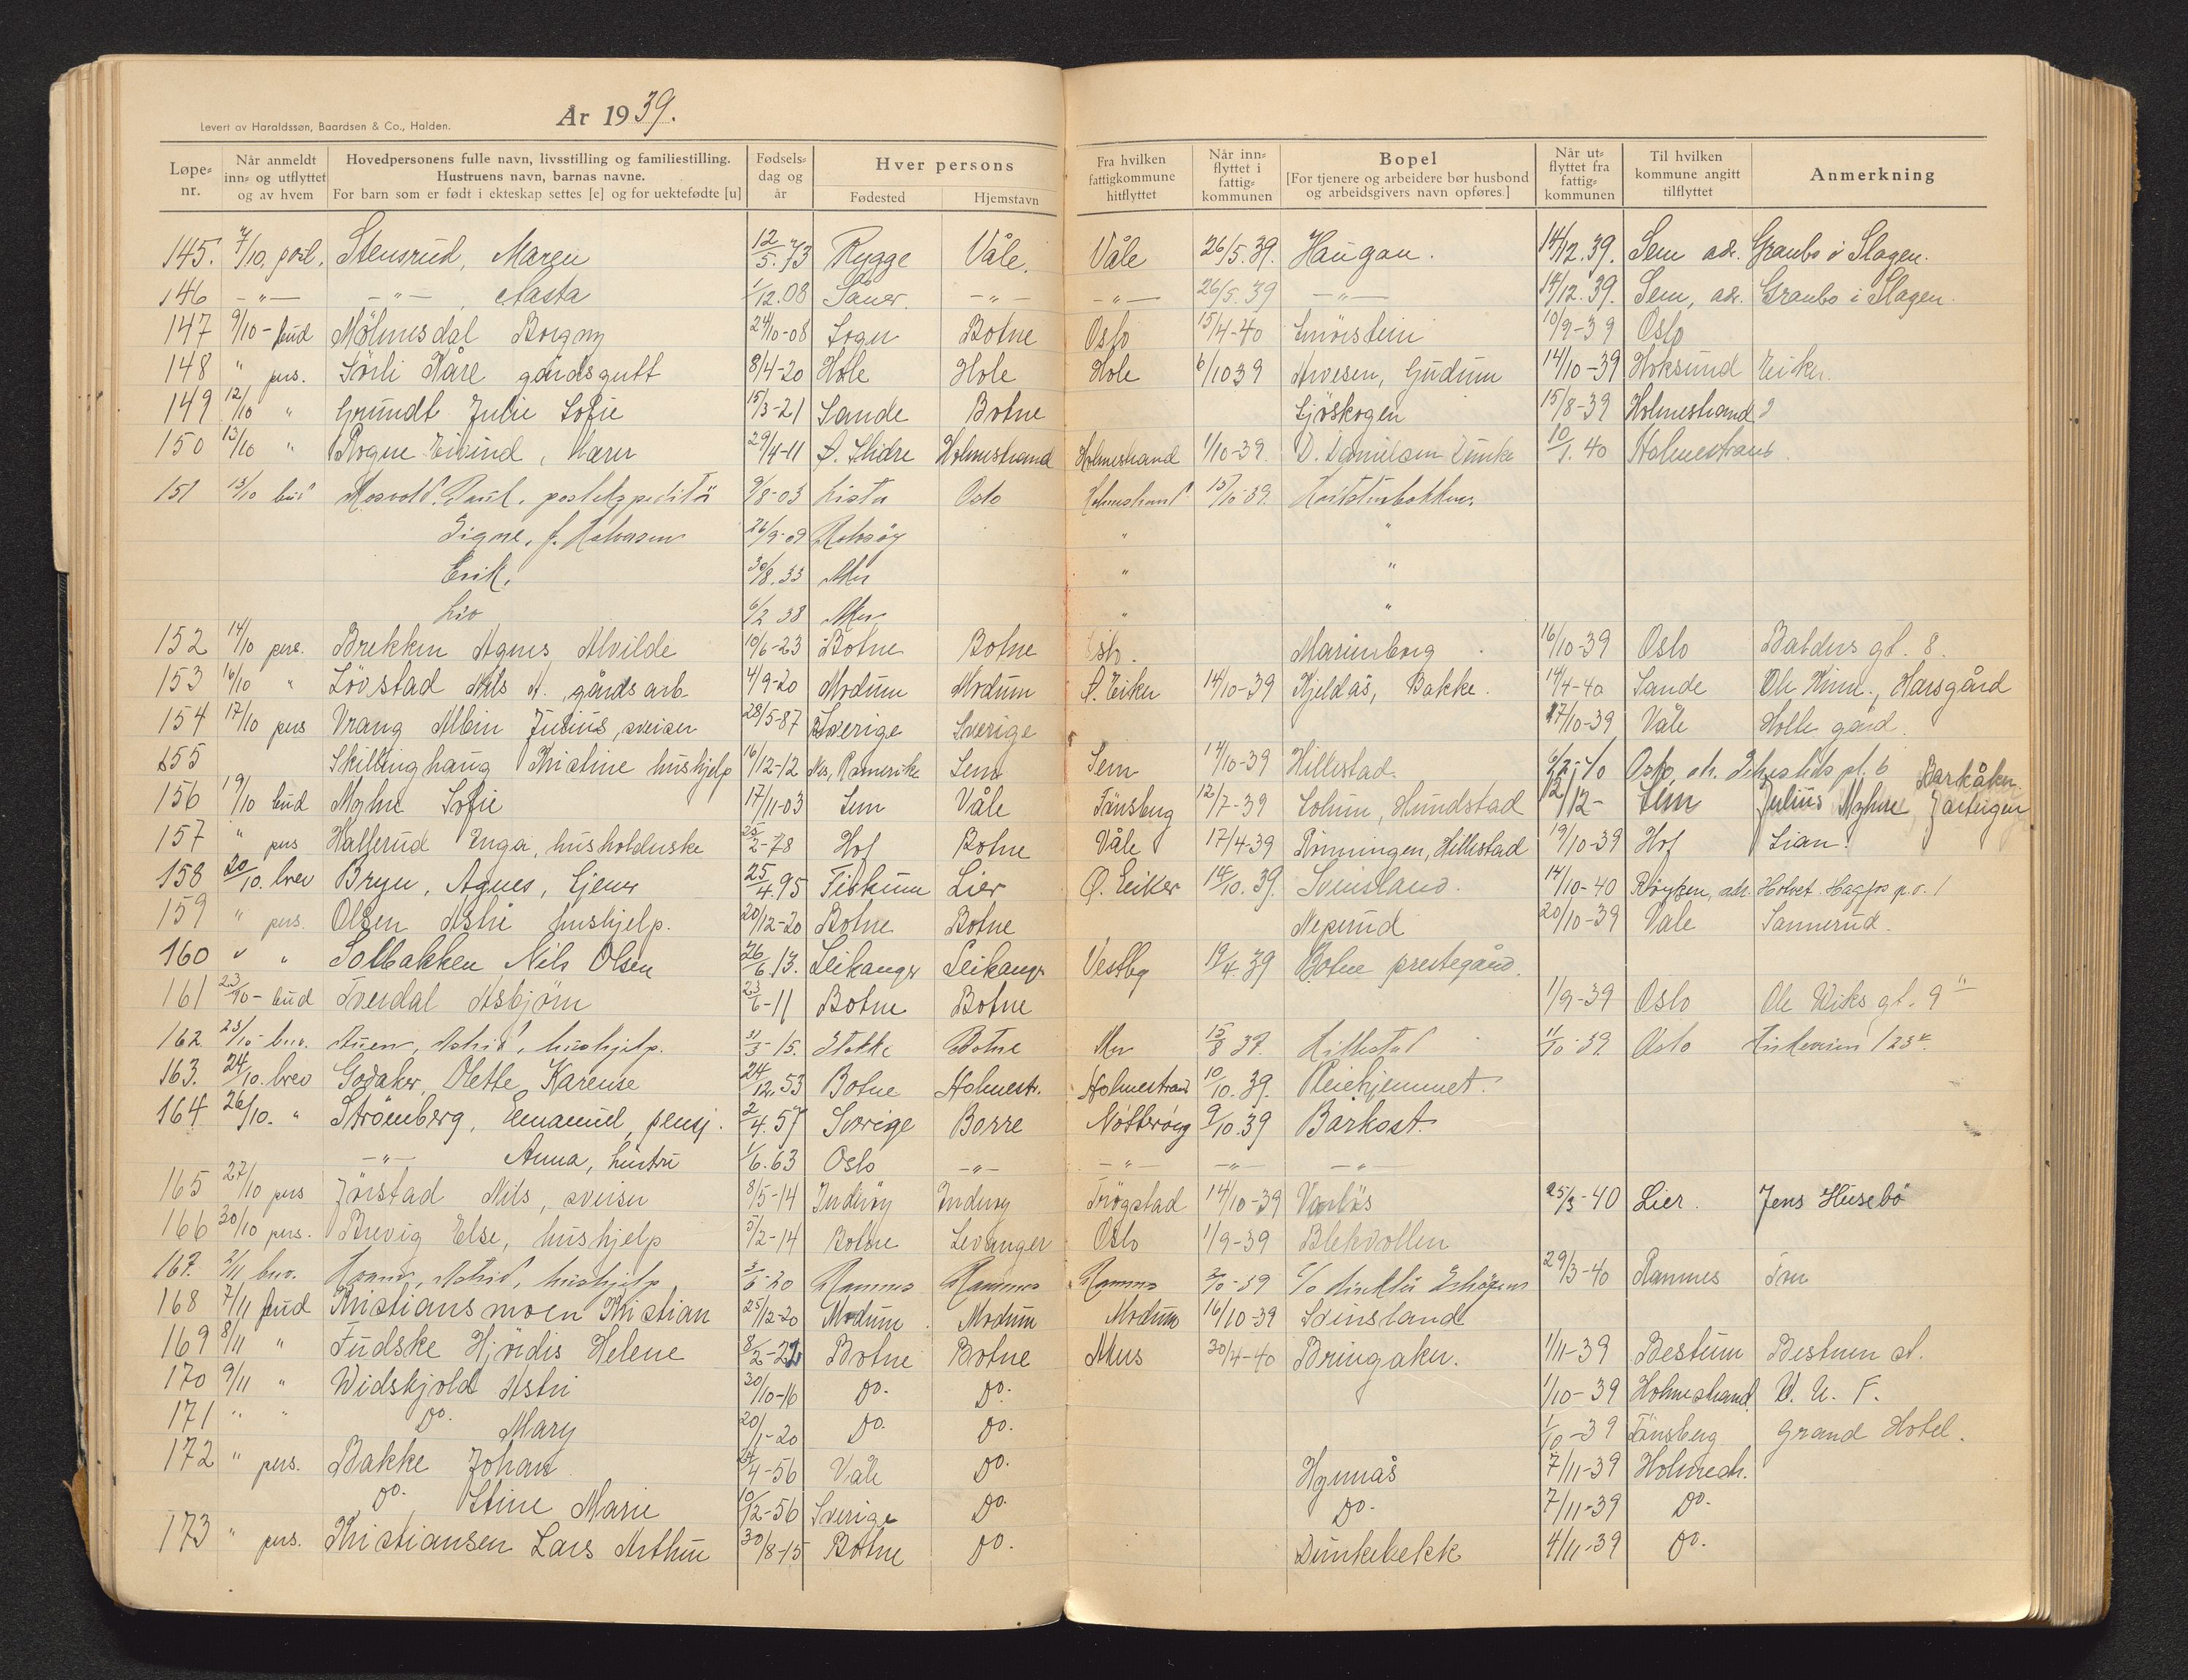 År 1939.
Levert av Haraldssøn, Baardsen & Co., Halden.
Løpe-nr. | Når anmeldt inn- og utflyttet og av hvem | Hovedpersonens fulle navn, livsstilling og familiestilling. Hustruens navn, barnas navne. For barn som er født i ekteskap settes [e] og for uektefødte [u] | Fødsels-dag og år | Hver persons Fødested | Hjemstavn | Fra hvilken fattigkommune hitflyttet | Når inn-flyttet i fattig-kommunen | Bopel [For tjenere og arbeidere bør husbond og arbeidsgivers navn opføres.] | Når ut-flyttet fra fattig-kommunen | Til hvilken kommune angitt tilflyttet | Anmerkning
145. 7/10. post. Stensrud, Maren 12/5.73 Rygge Våle. Våle 26/5.39. Haugan. 14/12.39. Sem adr. Granbo i Slagen.
146 -"- -"-, Aasta 1/12.08 Saner. -"- -"- 26/5.39 -"- 14/12.39. Sem, adr. Granbo i Slagen.
147 9/10 - bud Mölmesdal Borgny 24/10-08 Sogn Botne Oslo 15/4-40 Smörstein 10/9-39 Oslo
148 " pers. Sörli Kåre gårdsgutt 8/4-20 Hole Hole Hole 6/10 39 Arvesen, Gudum 14/10-39 Hoksund Eiker.
149 12/10 " Grundt Julie Sofie 15/3-21 Sande Botne Sjöskogen 15/8-39 Holmestrand
150 13/10 " Rogne Eivind, lærer 29/4-11 Ö. Slidre Holmestrand Holmestrand 1/10-39. D. Danielsen Dunke 10/1.40 Holmestrand.
151 13/10 bud Mosvold. Paul. postekspeditör 9/8-03 Lista Oslo Holmestrand 15/10-39.
Signe, f. Halvorsen 26/9-09 "
Erik. 30/8.33 Aker " "
Liv 6/2 38 Aker " "
152 14/10 pers. Brekken Agnes Alvilde 10/6-23 Botne Botne Oslo. Marienborg 16/10-39 Oslo Balders gt. 8.
153 16/10 " Lövstad Nils A., gårdsarb. 4/9-20 Modum Modum Ö. Eiker 14/10-39 Kjeldås, Bakke. 14/4-40 Sande Ole Hinn., Harsgård
154 17/10 pers Vrang Albin Julius, sveiser 28/5-87 Sverige Sverige 17/10-39 Våle Holle gård.
155 Skillinghaug Kristine hushjelp 16/12-12 Nes, Romerike Sem Sem 14/10-39 Hillestad. Oslo,
156 19/10 bud Myhre Sofie 17/11-03 Sem Våle Tönsberg 12/7-39 Solum, Hundstad 12/12- Sem Julius Myhre Barkåker. Jarteigen
157 " pers Hallerud Inga, husholderske 25/2-78 Hof Botne Våle 17/4-39 Rönningen, Hillestad 19/10-39 Hof Lian.
158 20/10. brev Bryn, Agnes, tjener 25/4.95 Fiskum Lier Ö. Eiker 14/10.39. Svinsland. 14/10-40 Röyken, adr. Holvet Hagfos p.o.
159 " pers. Olsen Astri hushjelp. 20/12-20 Botne Botne Neperud 20/10-39 Våle Sannerud.
160 " " Solbakken, Nils Olsen 26/6.13. Leikanger Leikanger Vestby 19/4.39 Botne prestegård.
161 23/10 - bud Tverdal Asbjörn 23/6-11 Botne Botne 1/9-39 Oslo Ole Wiks gt. 9
162. 23/10 - brev. Auen, Astrid, hushjelp. 31/3-15. Stokke Botne Aker 15/8 39. Hillestad 11/10-39 Oslo Kirkeveien 123
163. 24/10. brev Godaker, Olette Karense 24/12.53 Botne Holmestr. Holmestrand 10/10.39. Pleiehjemmet.
164 26/10. " Strömberg, Emanuel, pensj. 2/4.57 Sverige Borre Nötteröy 9/10.39 Barkost.
-"- Anna, hustru 1/6.63 Oslo -"- -"- -"- -"-
165 27/10 pers Jörstad Nils, sveiser 8/5-14 Inderöy Inderöy Trögstad 14/10-39 25/3-40 Lier. Jens Husebö
166 30/10 pers. Brevig Else, hushjelp 5/2-14 Botne Levanger Oslo 1/9-39 Blekvollen
167. 2/11 brev. Astrid, hushjelp 3/6-20 Ramnes Ramnes Ramnes 2/10-39 c/o direktör 29/3-40 Ramnes Fon
168 7/11 bud Kristiansmoen Kristian 25/12-20 Modum Modum Modum 16/10-39 Svinsland
169 8/11 " Fudske Hjördis Helene 8/2-22 Botne Botne Akers 30/4-40 Bringaker. 1/11-39 Bestum Bestum st.
170 9/11 " Widskjold Astri 30/10-16 Do. Do. 1/10-39 Holmestrand U. U. F.
171 " " Do. Mary 20/1-20 Do. Do. 1/10-39 Tönsberg Grand Hotel.
172 " pers. Bakke Johan 4-56 Våle Do. Hynnås 7/11-39 Holmestr.
Do. Stine Marie 10/12-56 Sverige Do. Do. 7/11-39 Do.
173 " pers. Kristiansen Lars Arthur 30/8-15 Botne Do. Dunkebekk 4/11-39 Do.